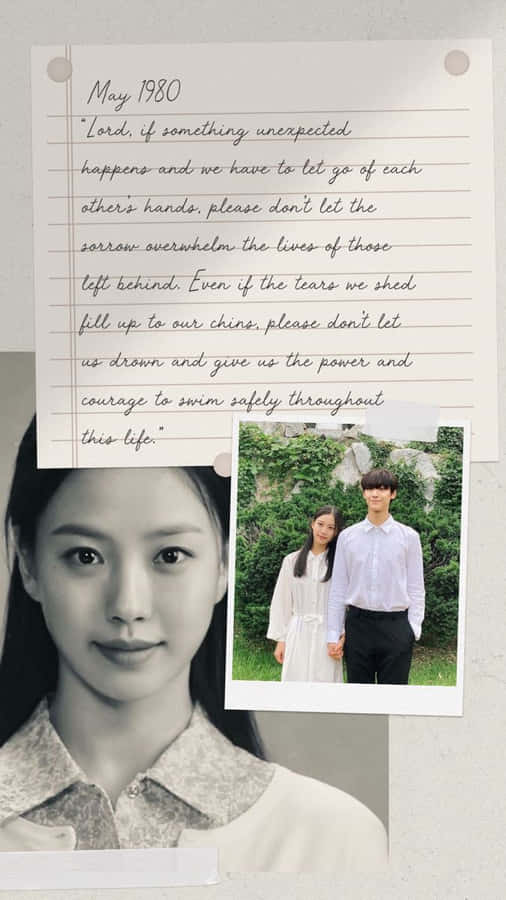 May 1980
"Lord, if something unexpected
happens and we have to let go of each
other's hands, please don't let the
sorrow overwhelm the lives of those
left behind. Even if the tears we shed
fill up to our chins, please don't let
us drown and give us the power and
courage to swim safely throughout
this life."